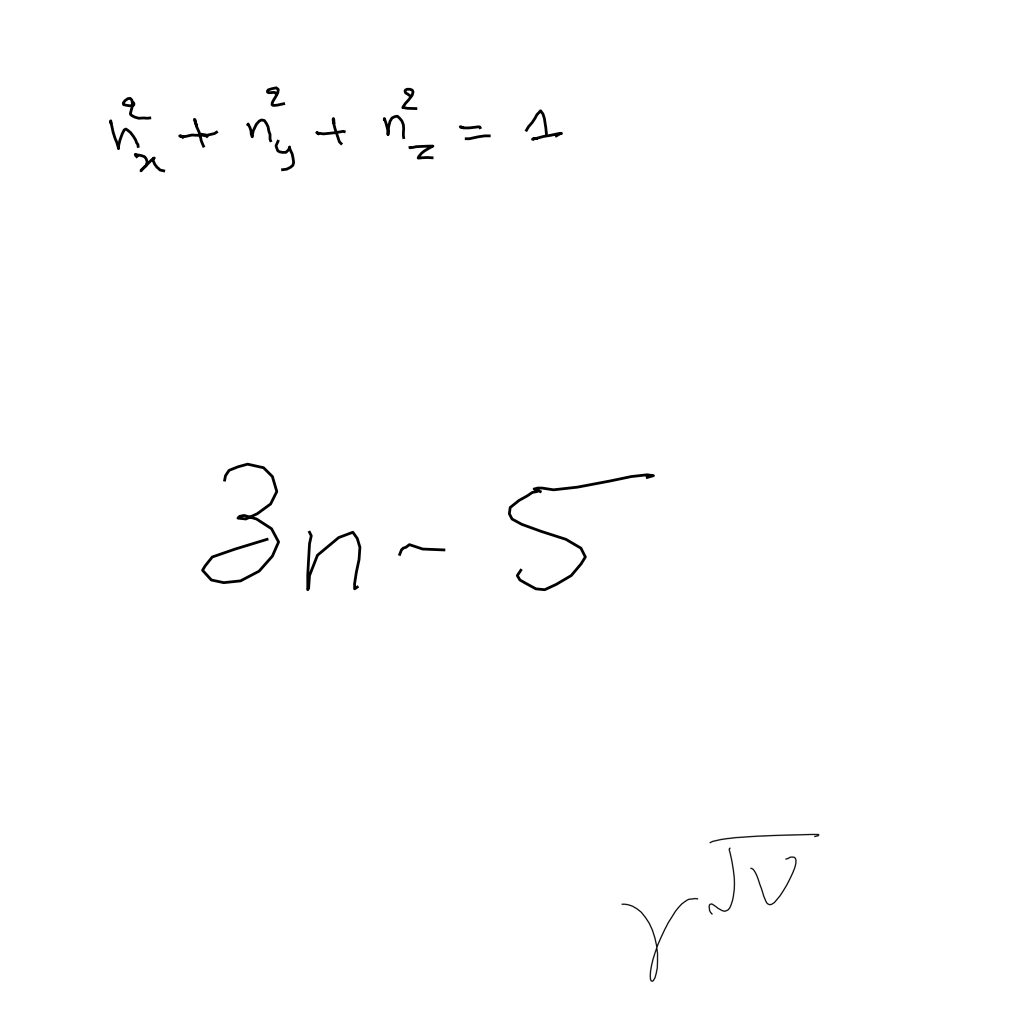 n_x^2 + n_y^2 + n_z^2 = 1
3n - 5